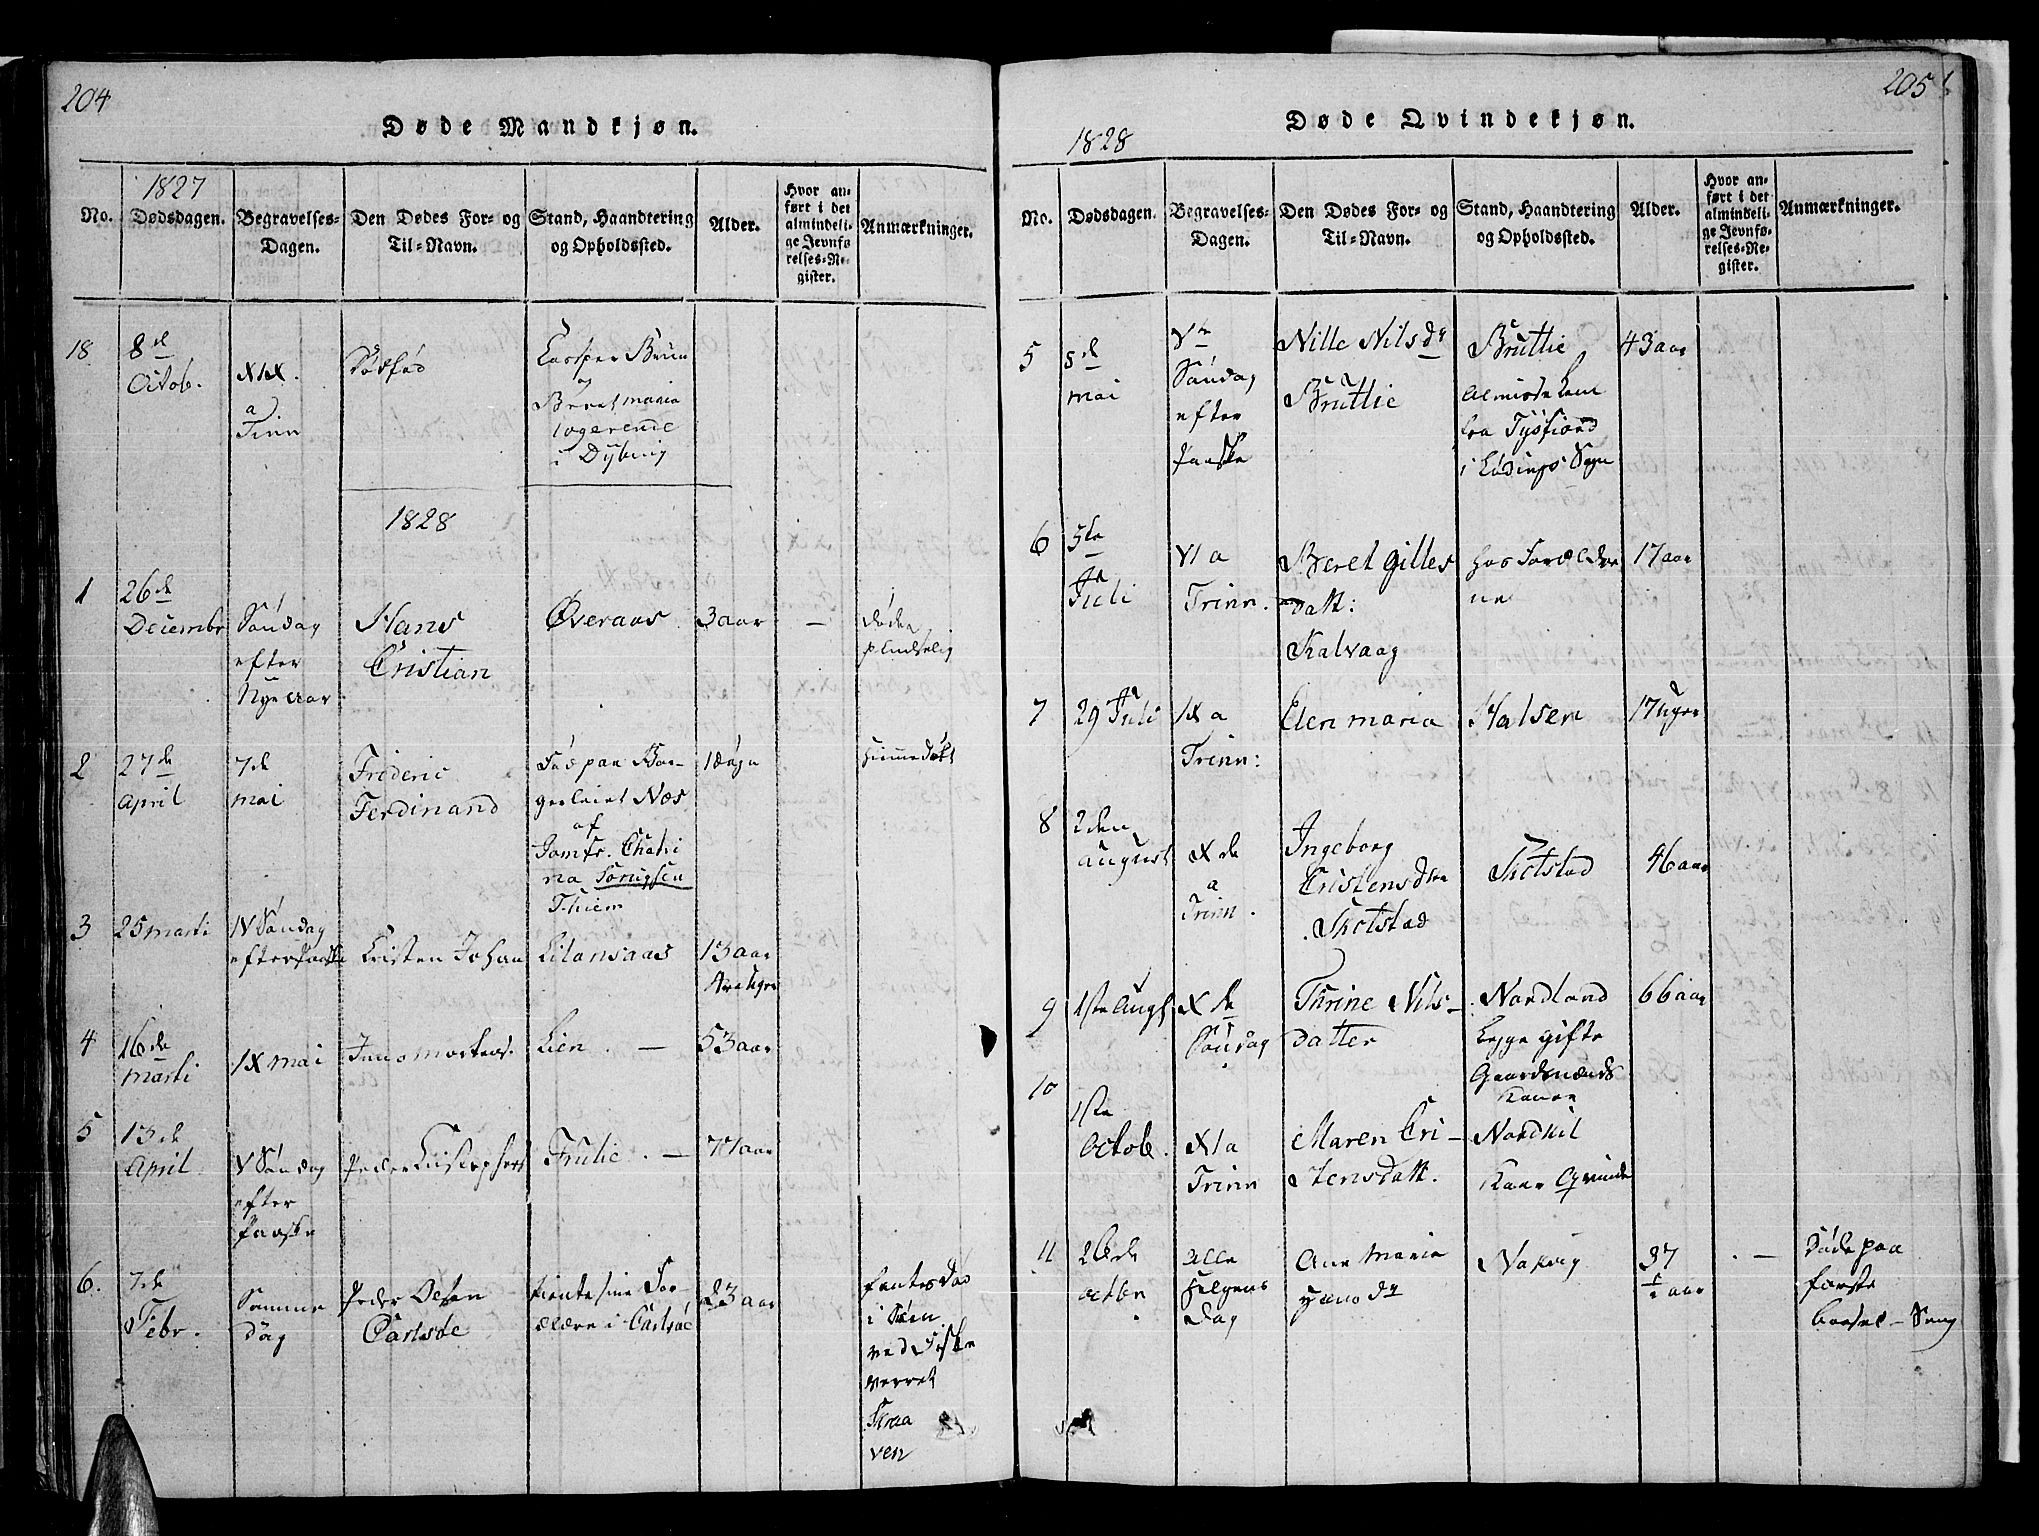 204
Døde Mandkjøn.
1827
No.
Dødsdagen.
Begravelses-
Dagen.
Den Dødes For- og
Til-Navn.
Stand, Haandtering
og Opholdssted.
Alder.
Hvor an-
ført i det
almindeli-
ge Jevnfø
relses-Re
gister.
Anmærkninger.
18
8de
Octob.
XIX.
a
Trin
Dødfød
Casper Brun
og
Beret maria
logerende
i Dybvig
1828
1
26de
Decembr
Søndag
efter
Nye aar
Hans
Cristian
Øveraas
3 aar
—
døde
pludselig
2
27de
April
7de
mai
Frideric
Ferdinand
Fød paa Bor-
gerleiet Næs
af
Jomfr. Chatri
na
Thiem
hiemmedøbt
3
25 marti
IV Søndag
efter Paaske
Cristen Johan
13 aar
4
16de
marti
IX mai
Jens mortens.
Lien. —
53 aar
5
13de
April
V Søndag
efter
Paaske
Peder
—
77 aar
6.
7de
Febr.
Samme
dag
Peder Olsen
Carlsöe
tiente sine For
ældre i Carlsöe
23 aar
fandtes død
i Søen
ved Fiske
verret
Skraa
ven
205
Døde Qvindekjøn.
1828
No.
Dødsdagen.
Begravelses-
Dagen.
Den Dødes For- og
Til-Navn.
Stand, Haandtering
og Opholdssted.
Alder.
Hvor an-
ført i det
almindeli-
ge Jevnfø-
relses-Re-
gister.
Anmærkninger.
5
5de
mai
Vte
Søndag
efter
Paaske
Nille Nilsdr
Bruttie
Bruttie
Almisse Lem
fra Tysfiord
i Lødings Sogn
43 aar
6
5te
Juli
VI a
Trinn.
Beret Gilles
datt:
Kalvaag
hos Forældre
ne
17 aar
7
29 Juli
IX a
Trinn:
Elen maria
Halsen
17 Uger
8
2den
August
Xde
a
Trinn.
Ingeborg
Cristensdtr
Skotstad
Skotstad
46 aar
9
1ste Augt
Xde
Søndag
Thrine Nils-
datter
Nordland
gifte
Gaardmands
Kone
66 aar
10
1ste
Octob.
XI a
Trinn
Maren Cri-
stensdatt.
Nordkil
Kaar Qvinde
11
26de
octbr
Alle
Helgens
Dag
Ane Maria
Jensdr
37
½ aar
. —
Døde paa
første
Barsel-Seng